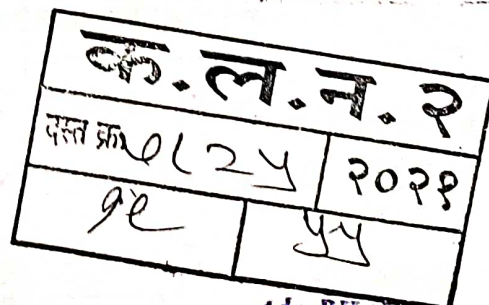 क.ल.न.२
दस्त क्र ७८२५ २०२१
१९ ५५